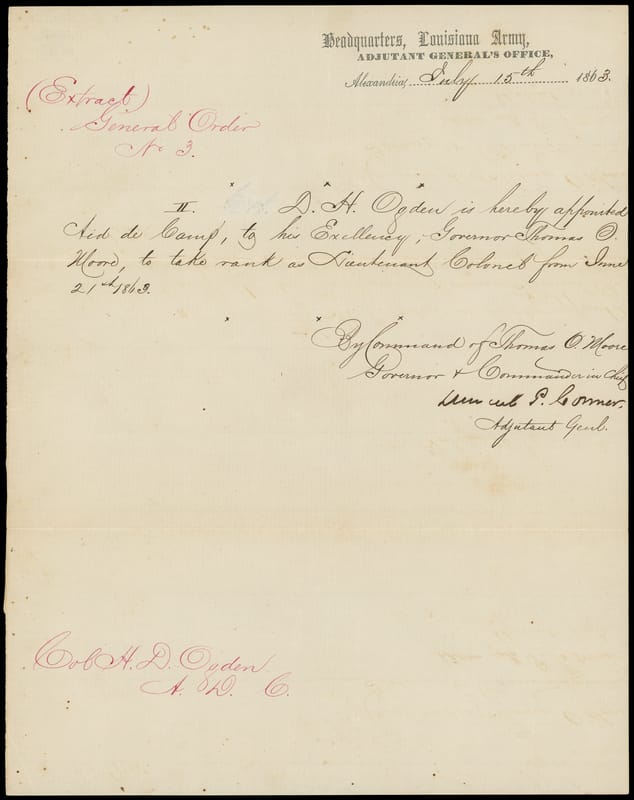 Headquarters, Louisiana Army,
ADJUTANT GENERAL'S OFFICE,
Alexandria, July 15th 1863.
(Extract)
General Order
No 3.
x x x
II. D. H. Ogden is hereby appointed
Aid de Camp, to his Exellency, Governor Thomas O.
Moore, to take rank as Lieutenant Colonel from June
21st 1863.
x x x
By Command of Thomas O. Moore
Governor & Commander in Chief
P.
Adjutant Genl.
Col H. D. Ogden
A. D. C.